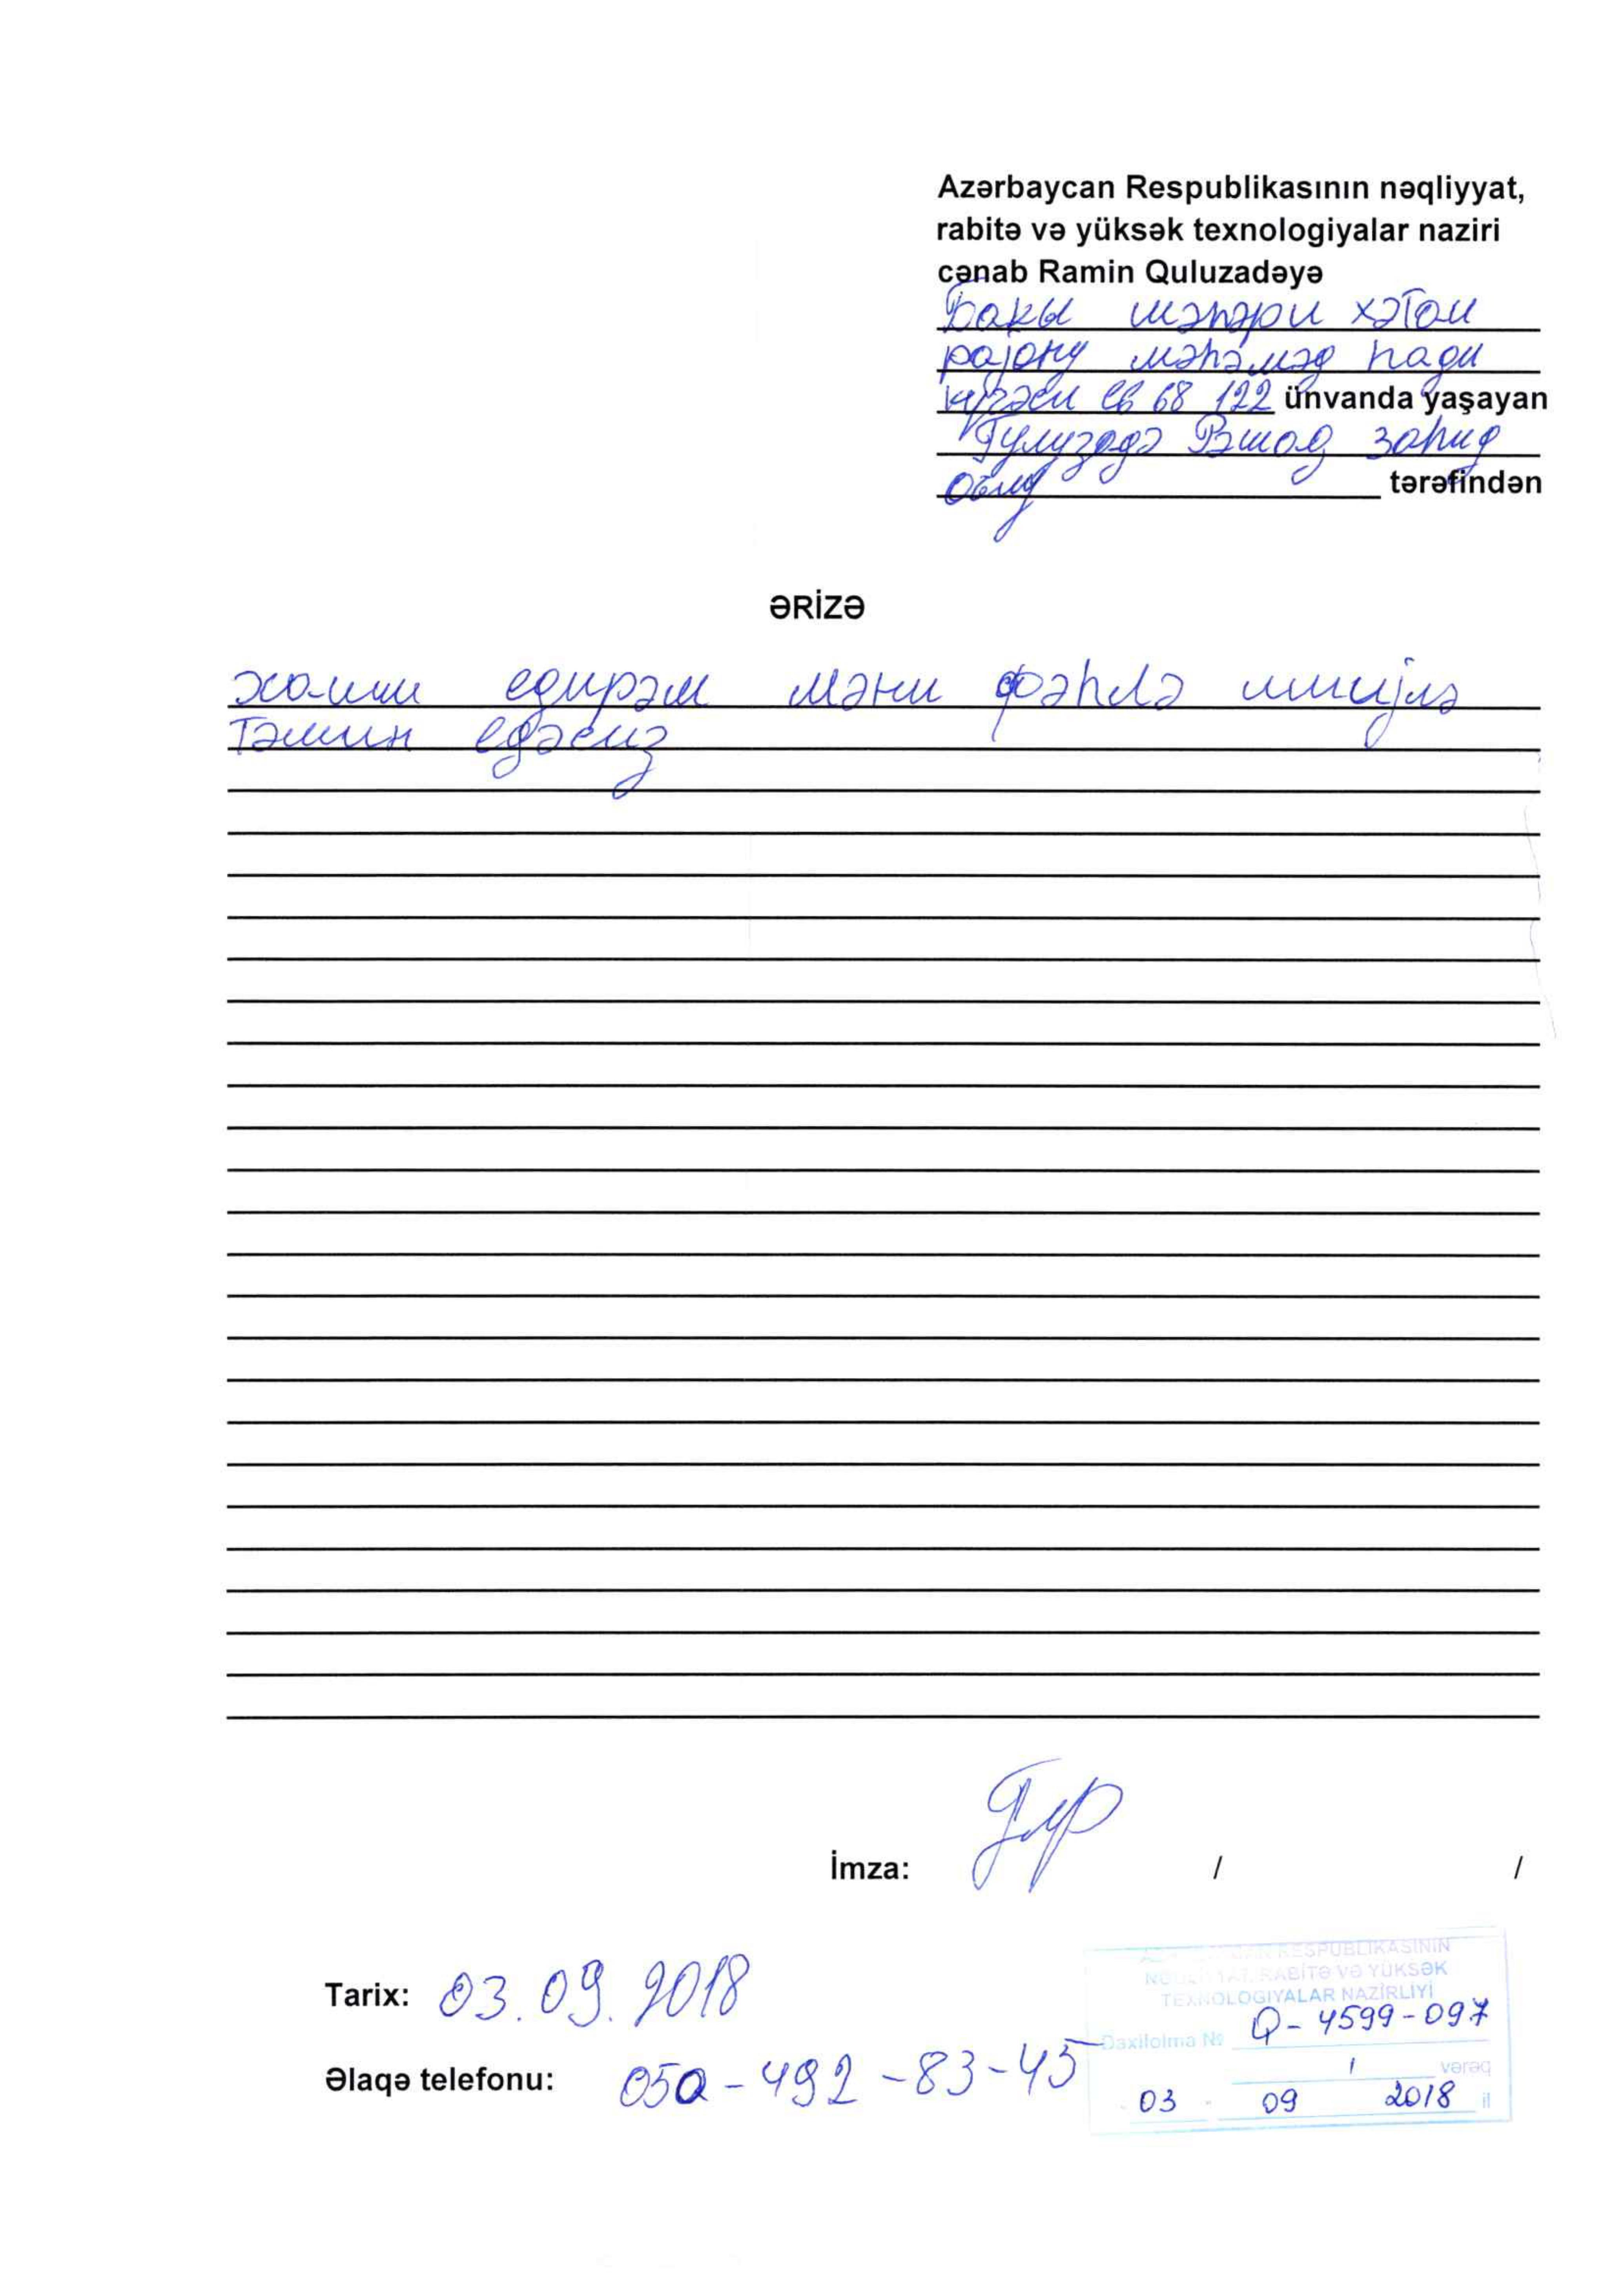 Azərbaycan Respublikasının nəqliyyat,
rabitə və yüksək texnologiyalar naziri
cənab Ramin Quluzadəyə
Бакы шәһәри хәтаи
рајону мәһәмәд һади
күчәси ев 68 122 ünvanda yaşayan
Гулузадә Рәшад заһид
оғлу tərəfindən
ƏRİZƏ
хаиш едирәм мәни фәһлә ишијлә
тәмин едәсиз
İmza: / /
Tarix: 03.09.2018
Əlaqə telefonu: 050-492-83-45
RESPUBLİKASININ
RABİTƏ VƏ YÜKSƏK
TEXNOLOGİYALAR NAZİRLİYİ
Daxilolma № Q-4599-097
1 vərəq
03 09 2018 il